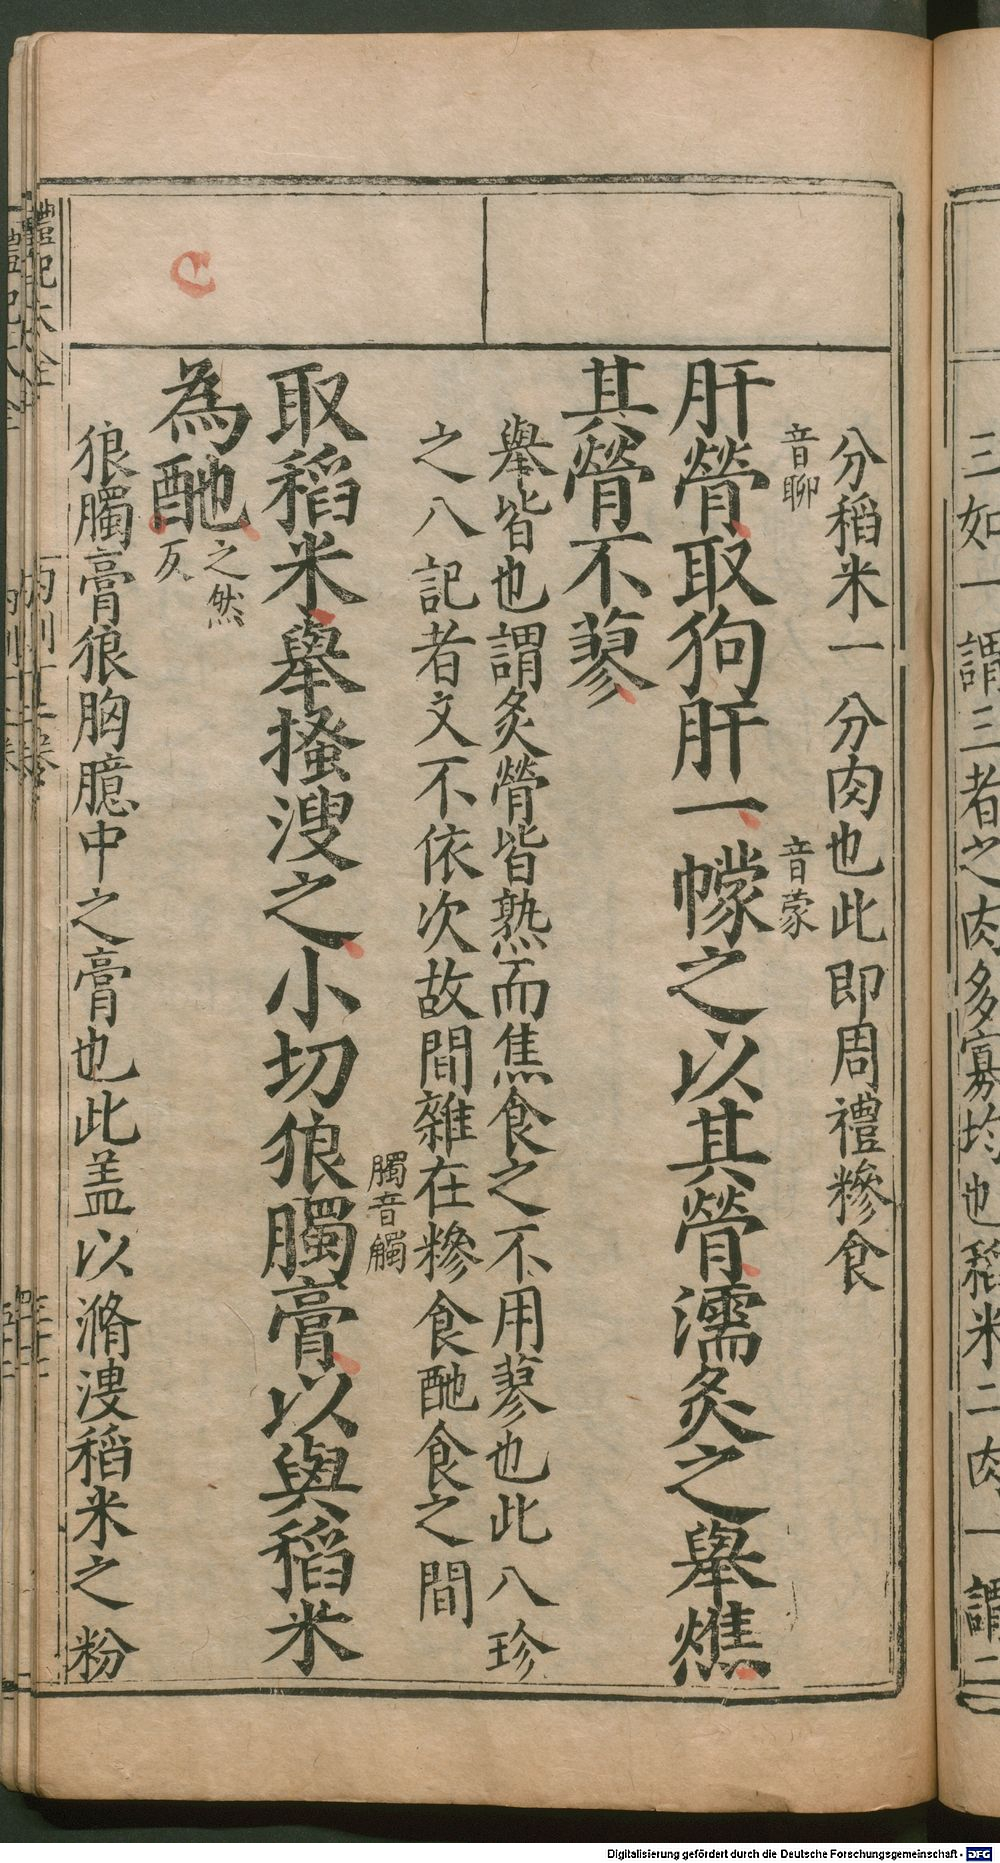 三如一謂三者之肉多寡均也稻米二肉一謂二
分稻米一分肉也此即周禮糝食
音聊
音蒙
肝膋取狗肝一幪之以其膋濡炙之舉燋
其膋不蓼
舉皆也謂炙膋皆熟而焦食之不用蓼也此八珍
之八記者文不依次故間雜在糝食酏食之間
臅音觸
取稻米舉搔溲之小切狼臅膏以與稻米
為酏
之然
反
狼臅膏狼胸臆中之膏也此盖以滫溲稻米之粉
禮記大全
Digitalisierung gefördert durch die Deutsche Forschungsgemeinschaft - DFG